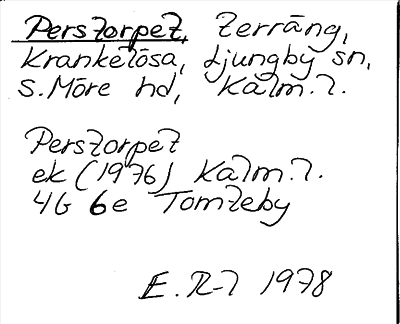 Perstorpet, terräng,
Krankelösa, Ljungby sn,
S. Möre hd, Kalm. l.
Perstorpet
ek (1976) Kalm. l.
4G 6e Tomteby
E. R-l 1978